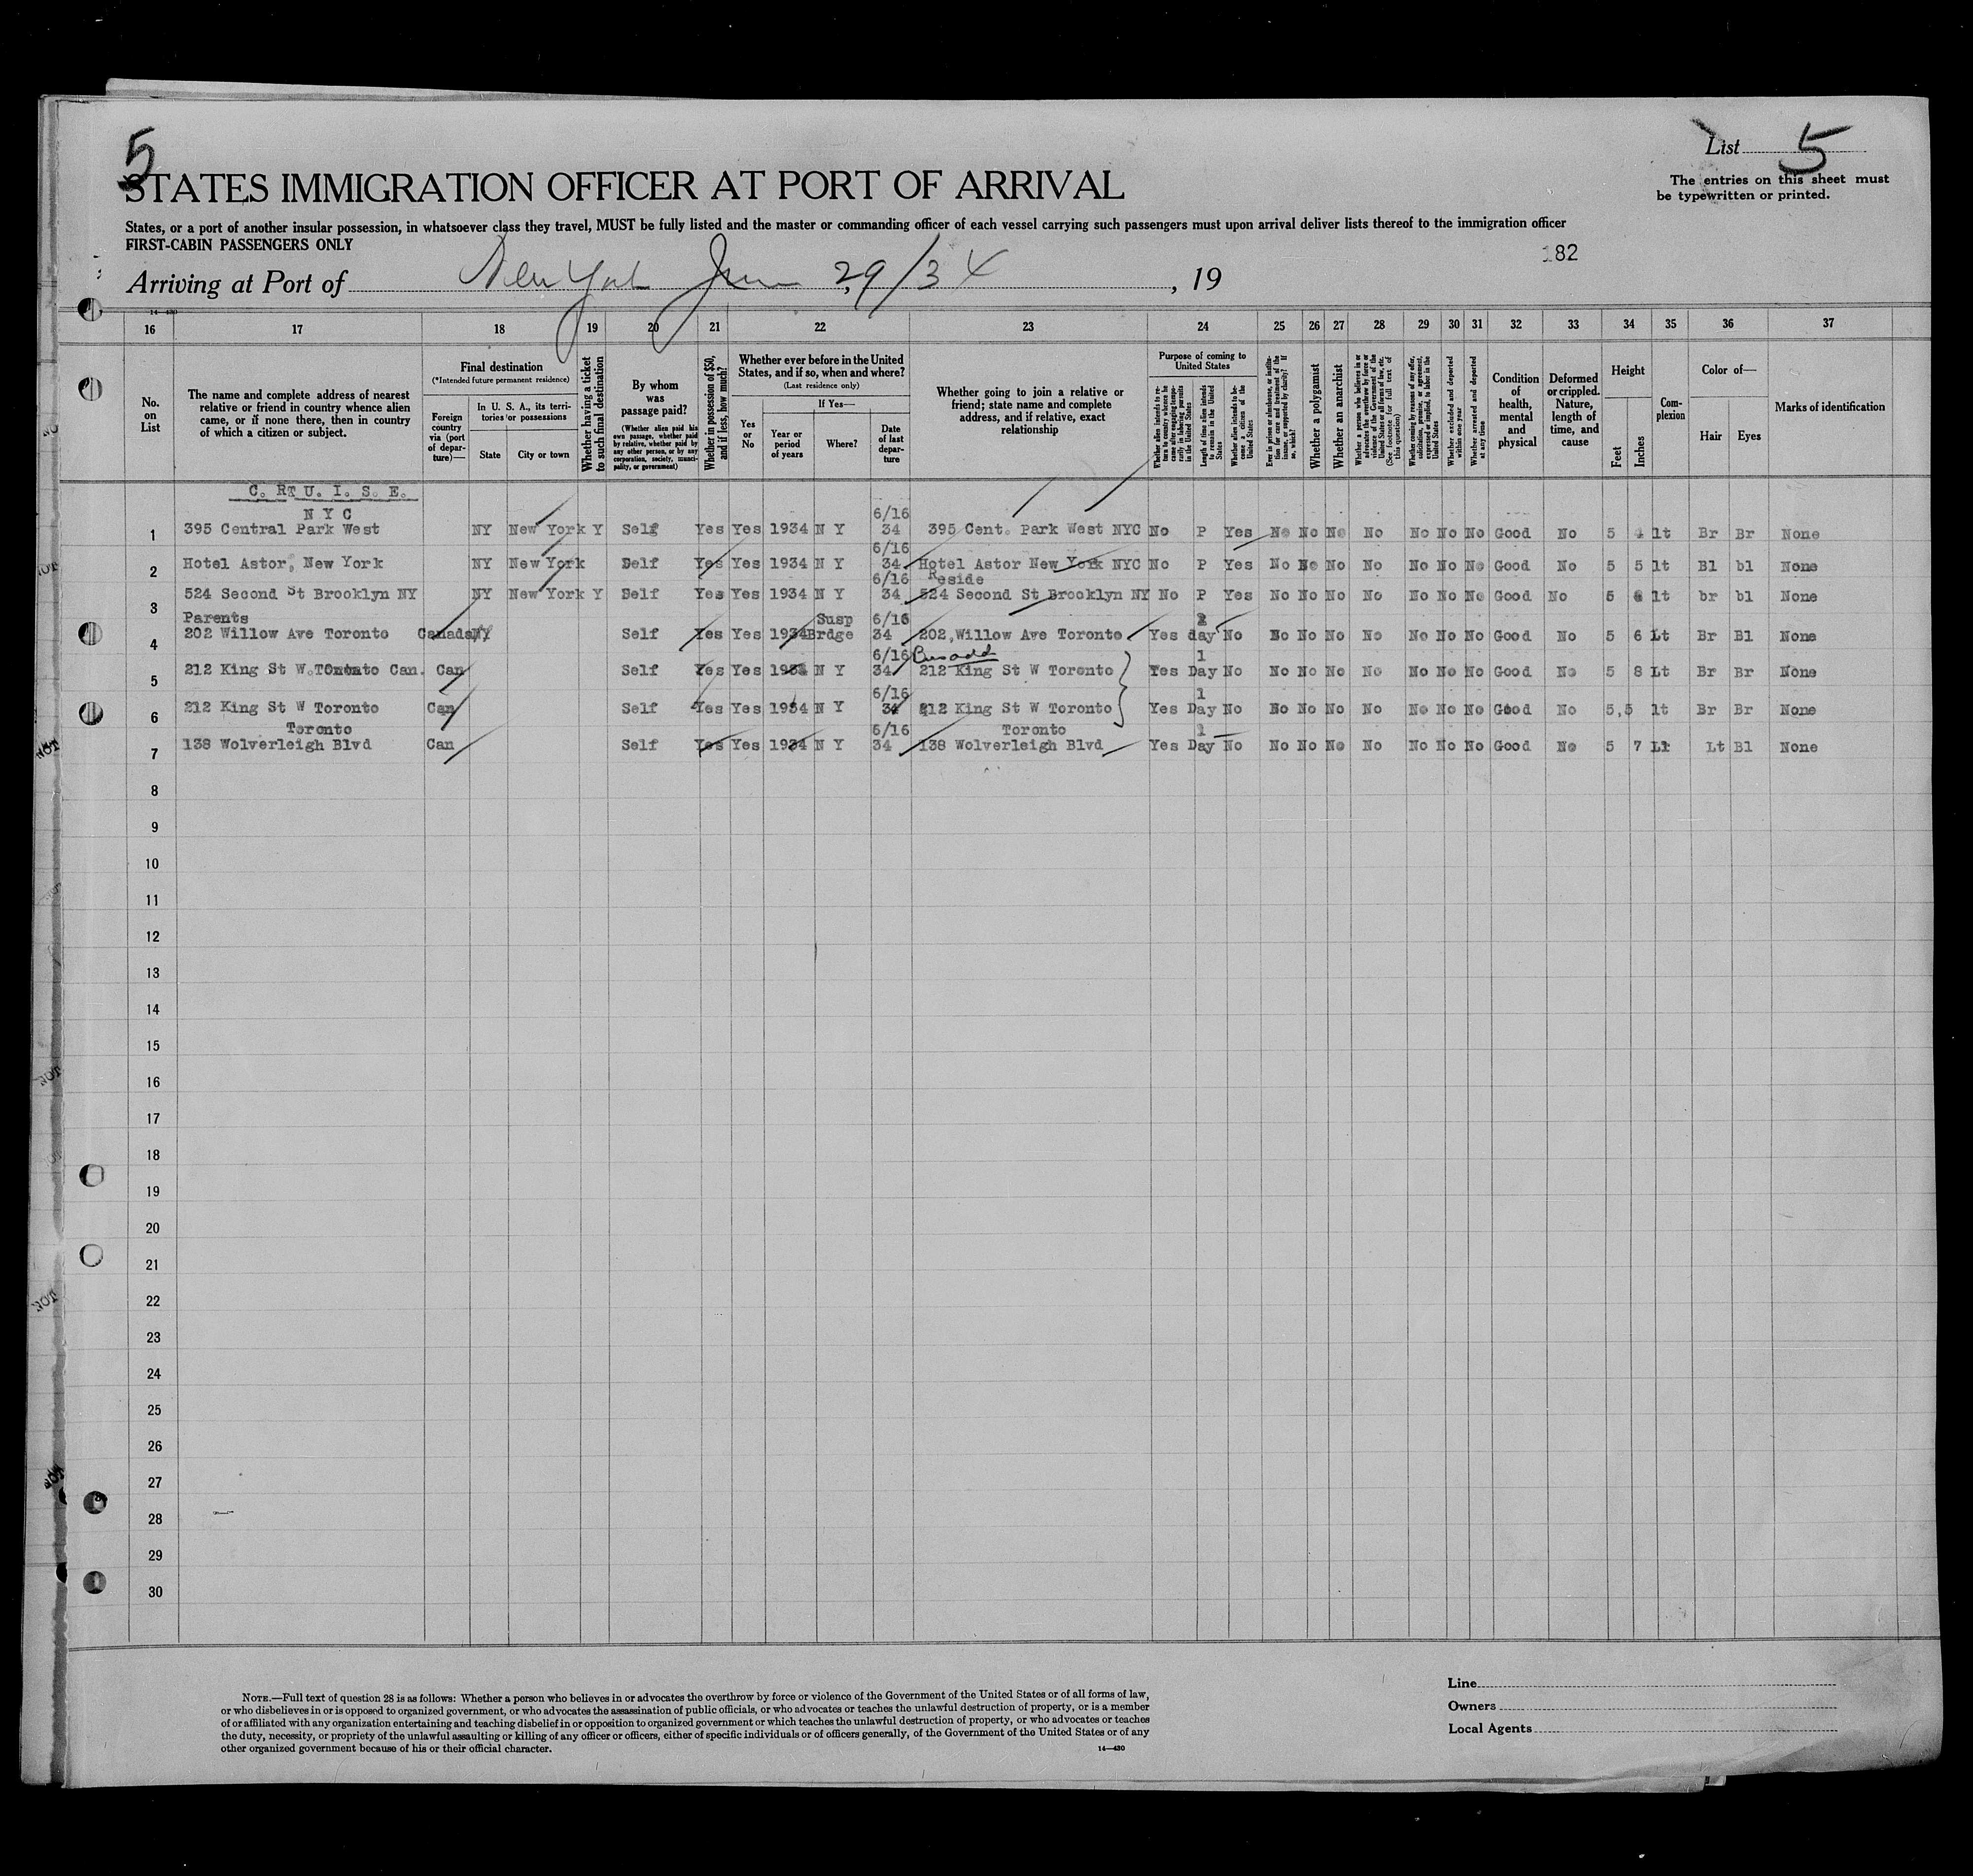 5
List 5
STATES IMMIGRATION OFFICER AT PORT OF ARRIVAL
The entries on this sheet must
be typewritten or printed.
States, or a port of another insular possession, in whatsoever class they travel, MUST be fully listed and the master or commanding officer of each vessel carrying such passengers must upon arrival deliver lists thereof to the immigration officer
FIRST-CABIN PASSENGERS ONLY
182
Arriving at Port of New York June 29/34, 19
14-430
16 17 18 19 20 21 22 23 24 25 26 27 28 29 30 31 32 33 34 35 36 37
No.
on
List
The name and complete address of nearest
relative or friend in country whence alien
came, or if none there, then in country
of which a citizen or subject.
Final destination
(*Intended future permanent residence)
Foreign
country
via (port
of depar-
ture)—
In U. S. A., its terri-
tories or possessions
State
City or town
Whether having a ticket
to such final destination
By whom
was
passage paid?
(Whether alien paid his
own passage, whether paid
by relative, whether paid by
any other person, or by any
corporation, society, munici-
pality, or government)
Whether in possession of $50,
and if less, how much?
Whether ever before in the United
States, and if so, when and where?
(Last residence only)
Yes
or
No
If Yes—
Year or
period
of years
Where?
Date
of last
depar-
ture
Whether going to join a relative or
friend; state name and complete
address, and if relative, exact
relationship
Purpose of coming to
United States
Whether alien intends to re-
turn to country whence he
came after engaging tempo-
rarily in laboring pursuits
in the United States
Length of time alien intends
to remain in the United
States
Whether alien intends to be-
come a citizen of the
United States
Ever in prison or almshouse, or institu-
tion for care and treatment of the
insane, or supported by charity? If
so, which?
Whether a polygamist
Whether an anarchist
Whether a person who believes in or
advocates the overthrow by force or
violence of the Government of the
United States or all forms of law, etc.
(See footnote for full text of
this question)
Whether coming by reason of any offer,
solicitation, promise, or agreement,
expressed or implied, to labor in the
United States
Whether excluded and deported
within one year
Whether arrested and deported
at any time
Condition
of
health,
mental
and
physical
Deformed
or crippled.
Nature,
length of
time, and
cause
Height
Feet
Inches
Com-
plexion
Color of—
Hair
Eyes
Marks of identification
C. R U. I. S. E.
N Y C 6/16
1 395 Central Park West NY New York Y Self Yes Yes 1934 N Y 34 395 Cent. Park West NYC No P Yes No No No No No No No Good No 5 4 lt Br Br None
6/16
2 Hotel Astor, New York NY New York Delf Yes Yes 1934 N Y 34 Hotel Astor New York NYC No P Yes No No No No No No No Good No 5 5 lt Bl bl None
6/16 Reside
3 524 Second St Brooklyn NY NY New York Y Self Yes Yes 1934 N Y 34 524 Second St Brooklyn NY No P Yes No No No No No No No Good No 5 lt br bl None
Parents Susp 6/16 2
4 202 Willow Ave Toronto Canada NY Self Yes Yes 1934 Brdge 34 202 Willow Ave Toronto Yes day No No No No No No No No Good No 5 6 Lt Br Bl None
6/16 Bus add 1
5 212 King St W. Toronto Can. Can Self Yes Yes 1934 N Y 34 212 King St W Toronto Yes Day No No No No No No No No Good No 5 8 Lt Br Br None
6/16 1
6 212 King St W Toronto Can Self Yes Yes 1934 N Y 34 212 King St W Toronto Yes Day No No No No No No No No Good No 5,5 lt Br Br None
Toronto 6/16 Toronto 1
7 138 Wolverleigh Blvd Can Self Yes Yes 1934 N Y 34 138 Wolverleigh Blvd Yes Day No No No No No No No No Good No 5 7 Lt Lt Bl None
8
9
10
11
12
13
14
15
16
17
18
19
20
21
22
23
24
25
26
27
28
29
30
NOTE.—Full text of question 28 is as follows: Whether a person who believes in or advocates the overthrow by force or violence of the Government of the United States or of all forms of law,
or who disbelieves in or is opposed to organized government, or who advocates the assassination of public officials, or who advocates or teaches the unlawful destruction of property, or is a member
of or affiliated with any organization entertaining and teaching disbelief in or opposition to organized government or which teaches the unlawful destruction of property, or who advocates or teaches
the duty, necessity, or propriety of the unlawful assaulting or killing of any officer or officers, either of specific individuals or of officers generally, of the Government of the United States or of any
other organized government because of his or their official character.
14—430
Line
Owners
Local Agents